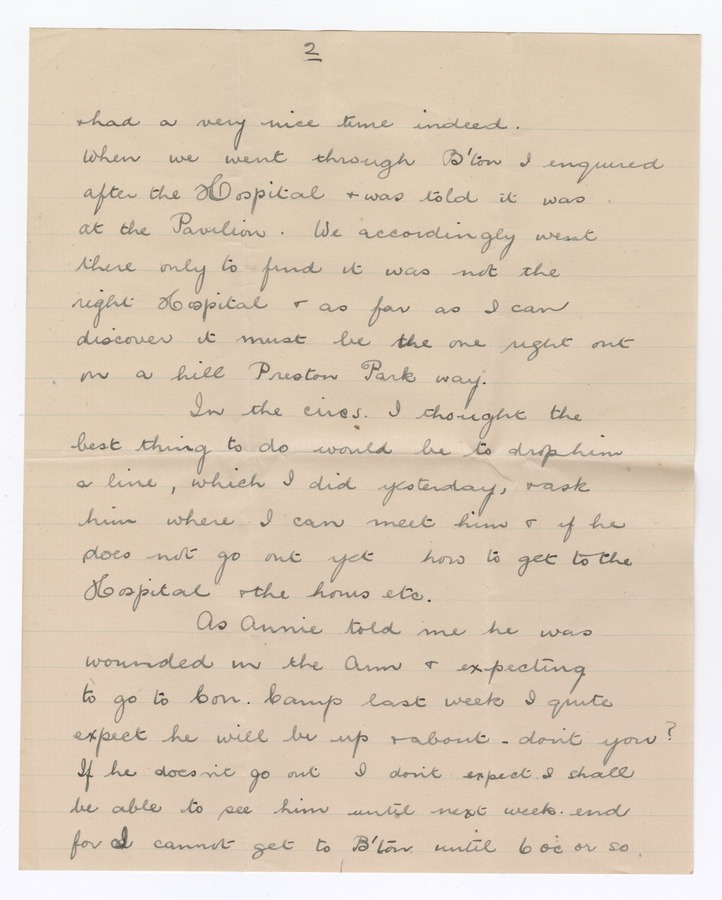 2
& had a very nice time indeed.
When we went through B'ton I enquired
after the Hospital & was told it was
at the Pavilion. We accordingly went
there only to find it was not the
right Hospital & as far as I can
discover it must be the one right out
on a hill Preston Park way.
In the circs. I thought the
best thing to do would be to drop him
a line, which I did yesterday, & ask
him where I can meet him & if he
does not go out yet how to get to the
Hospital & the hours etc.
As Annie told me he was
wounded in the Arm & expecting
to go to Con. Camp last week I quite
expect he will be up & about - don't you?
If he doesn't go out I don't expect I shall
be able to see him until next week-end
for I cannot get to B'ton until 6 oc or so.